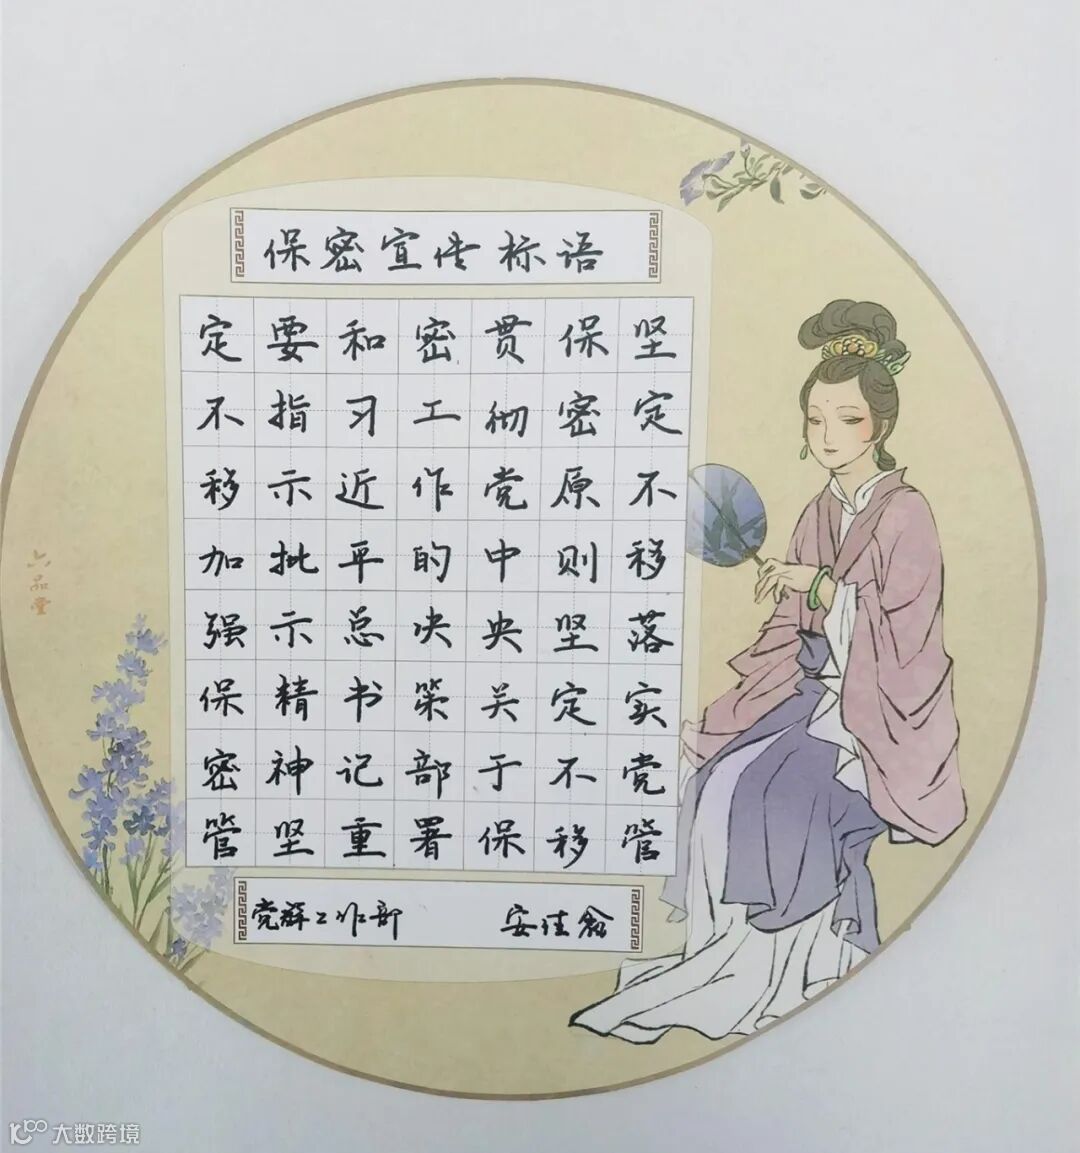 保密宣传标语
坚定不移落实党管
保密原则坚定不移
贯彻党中央关于保
密工作的决策部署
和习近平总书记重
要指示批示精神坚
定不移加强保密管
党群工作部 安佳
六品堂
大数跨境